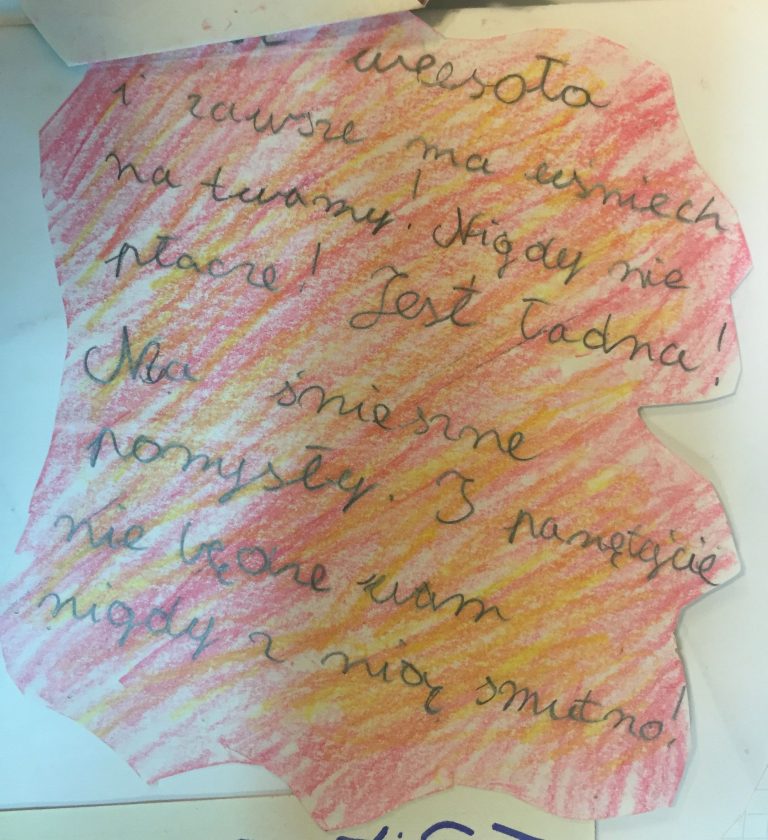 weesoła
i zawsze ma uśniech
na twamy! Nigdy nie
płacze! Jest ładna!
Ma śnieszne
pomysły. I pamętajcie
nie będze wam
nigdy z nią smutno!